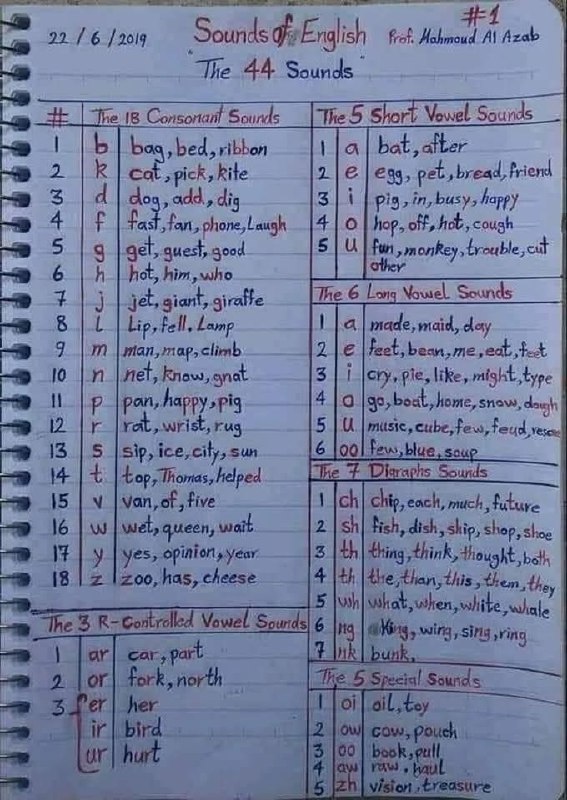 #1
22 / 6 / 2019 Sounds of English Prof. Mahmoud Al Azab
"The 44 Sounds"
# The 18 Consonant Sounds
1 b bag, bed, ribbon
2 k cat, pick, kite
3 d dog, add, dig
4 f fast, fan, phone, Laugh
5 g get, guest, good
6 h hot, him, who
7 j jet, giant, giraffe
8 l Lip, fell. Lamp
9 m man, map, climb
10 n net, know, gnat
11 p pan, happy, pig
12 r rat, wrist, rug
13 s sip, ice, city, sun
14 t top, Thomas, helped
15 v van, of, five
16 w wet, queen, wait
17 y yes, opinion, year
18 z zoo, has, cheese
The 3 R-Controlled Vowel Sounds
1 ar car, part
2 or fork, north
3 er her
ir bird
ur hurt
The 5 Short Vowel Sounds
1 a bat, after
2 e egg, pet, bread, friend
3 i pig, in, busy, happy
4 o hop, off, hot, cough
5 u fun, monkey, trouble, cut
other
The 6 Long Vowel Sounds
1 a made, maid, day
2 e feet, bean, me, eat, feet
3 i cry, pie, like, might, type
4 o go, boat, home, snow, dough
5 u music, cube, few, feud, rescue
6 oo few, blue, soup
The 7 Digraphs Sounds
1 ch chip, each, much, future
2 sh fish, dish, ship, shop, shoe
3 th thing, think, thought, both
4 th the, than, this, them, they
5 wh what, when, white, whale
6 ng King, wing, sing, ring
7 nk bunk,
The 5 Special Sounds
1 oi oil, toy
2 ow cow, pouch
3 oo book, pull
4 aw raw, haul
5 zh vision, treasure